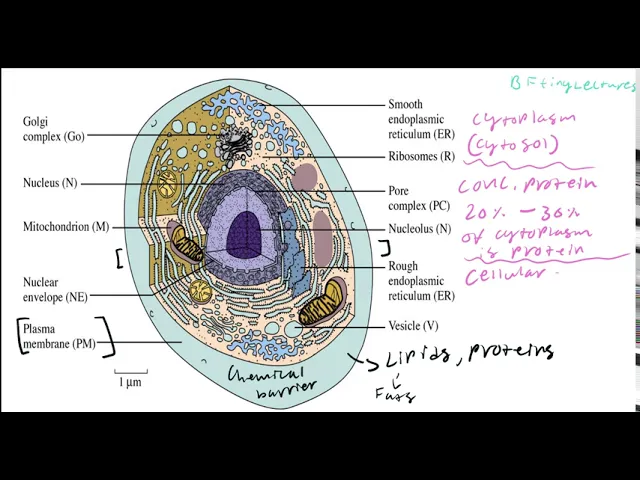 BFtinyLectures
Golgi
complex (Go)
Nucleus (N)
Mitochondrion (M)
Nuclear
envelope (NE)
Plasma
membrane (PM)
1 μm
Smooth
endoplasmic
reticulum (ER)
Ribosomes (R)
Pore
complex (PC)
Nucleolus (N)
Rough
endoplasmic
reticulum (ER)
Vesicle (V)
cytoplasm
(cytosol)
conc. protein
20% - 30%
of cytoplasm
is protein
cellular
Chemical
barrier
Lipids, proteins
Fats